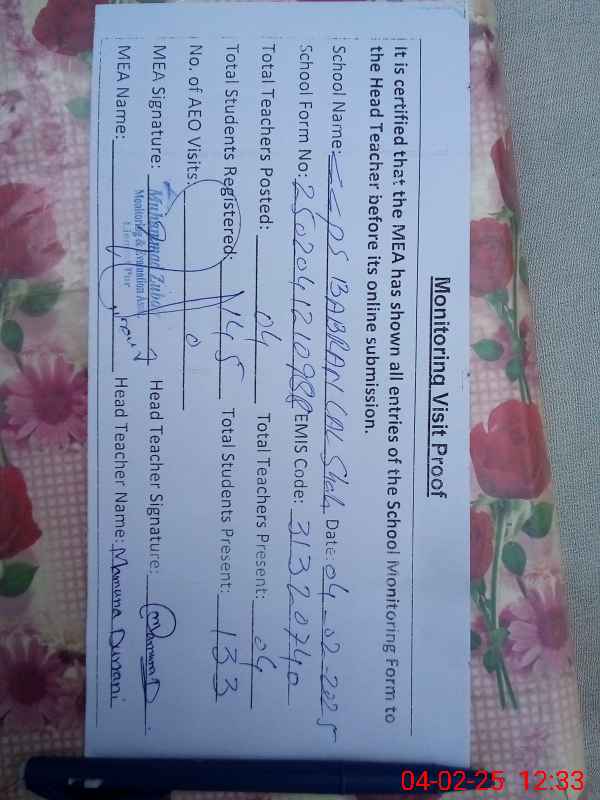 Monitoring Visit Proof
It is certified that the MEA has shown all entries of the School Monitoring Form to
the Head Teacher before its online submission.
School Name: PS BABRAN LAL Shah Date: 04-02-2025
School Form No: EMIS Code: 31320740
Total Teachers Posted: 04 Total Teachers Present: 04
Total Students Registered: 145 Total Students Present: 133
No. of AEO Visits: 0
MEA Signature: Head Teacher Signature: Mamuna D
Muhammad Zubair
Monitoring & Evaluation Asstt.
MEA Name: Head Teacher Name: Mamuna Durrani
04-02-25 12:33